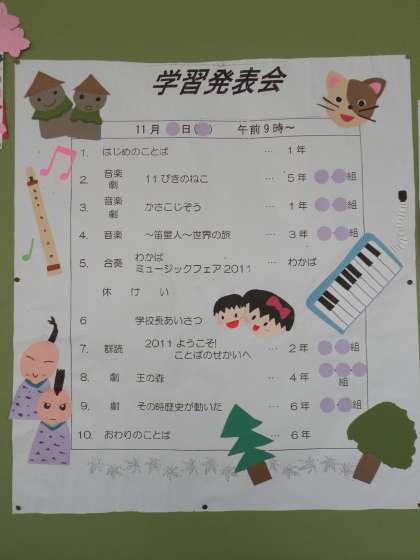 学習発表会
11月 日( ) 午前9時～
1. はじめのことば … 1年
2. 音楽劇 11ぴきのねこ … 5年 組
3. 音楽劇 かさこじぞう … 1年 組
4. 音楽 ～笛星人～世界の旅 … 3年 組
5. 合奏 わかば
ミュージックフェア2011 … わかば
休 けい
6 学校長あいさつ
7. 群読 2011ようこそ!
ことばのせかいへ … 2年 組
8. 劇 王の森 … 4年
組
9. 劇 その時歴史が動いた … 6年 組
10. おわりのことば … 6年